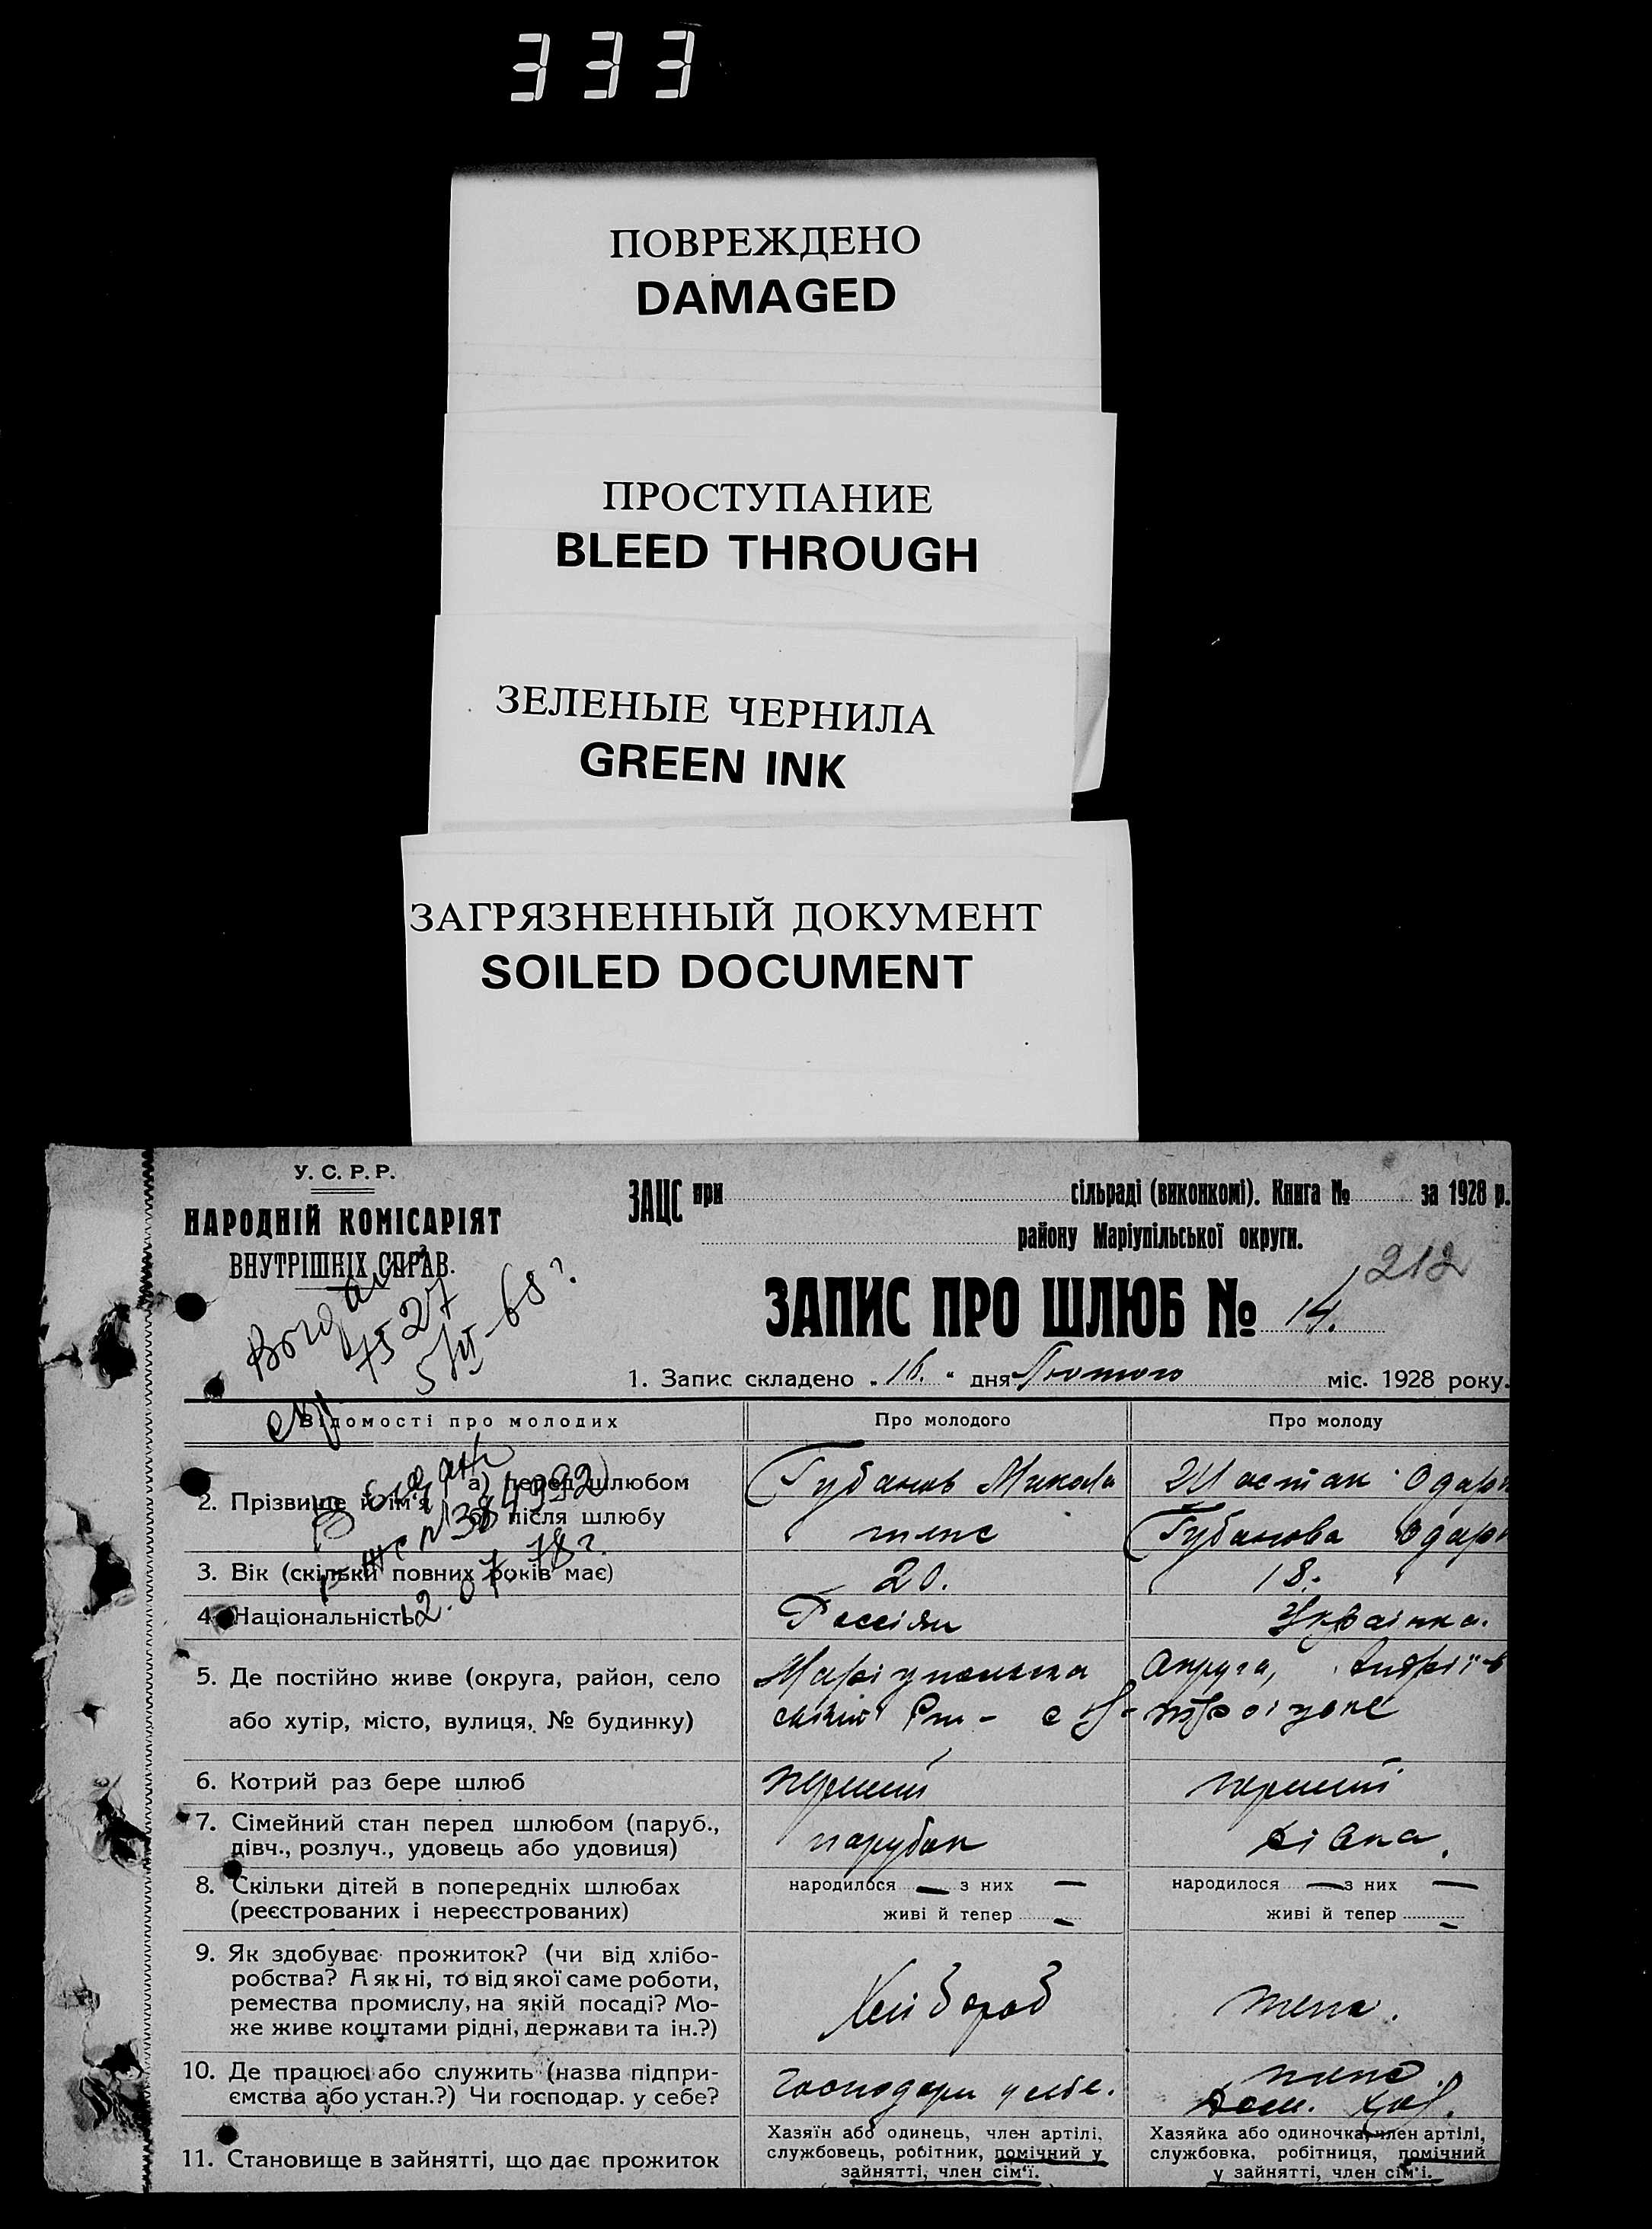 333
ПОВРЕЖДЕНО
DAMAGED
ПРОСТУПАНИЕ
BLEED THROUGH
ЗЕЛЕНЫЕ ЧЕРНИЛА
GREEN INK
ЗАГРЯЗНЕННЫЙ ДОКУМЕНТ
SOILED DOCUMENT
У. С. Р. Р.
НАРОДНІЙ КОМІСАРІЯТ
ВНУТРІШНІХ СПРАВ.
ЗАЦС при сільраді (виконкомі). Книга № за 1928 р.
району Маріупільської округи.
212
ЗАПИС ПРО ШЛЮБ № 14.
1. Запис складено „ 16. “ дня Лютого міс. 1928 року.
Відомості про молодих
Про молодого
Про молоду
2. Прізвище й ім'я
а) перед шлюбом
Губанов Микола
Шостак Одари
б) після шлюбу
теж
Губанова Одари
3. Вік (скільки повних років має)
20.
18.
4. Національність
Россіян
Українка.
5. Де постійно живе (округа, район, село
або хутір, місто, вулиця, № будинку)
Маріупольська Округа,
6. Котрий раз бере шлюб
перший
перший
7. Сімейний стан перед шлюбом (паруб.,
дівч., розлуч., удовець або удовиця)
парубок
дівка.
8. Скільки дітей в попередніх шлюбах
(реєстрованих і нереєстрованих)
народилося — з них —
живі й тепер —
народилося — з них —
живі й тепер —
9. Як здобуває прожиток? (чи від хлібо-
робства? А як ні, то від якої саме роботи,
ремества промислу, на якій посаді? Мо-
же живе коштами рідні, держави та ін.?)
Хлібороб
теж.
10. Де працює або служить (назва підпри-
ємства або устан.?) Чи господар. у себе?
господари у себе.
теж.
11. Становище в зайнятті, що дає прожиток
Хазяїн або одинець, член артілі,
службовець, робітник, помічний у
зайнятті, член сім'ї.
Хазяйка або одиночка, член артілі,
службовка, робітниця, помічний
у зайнятті, член сім'ї.